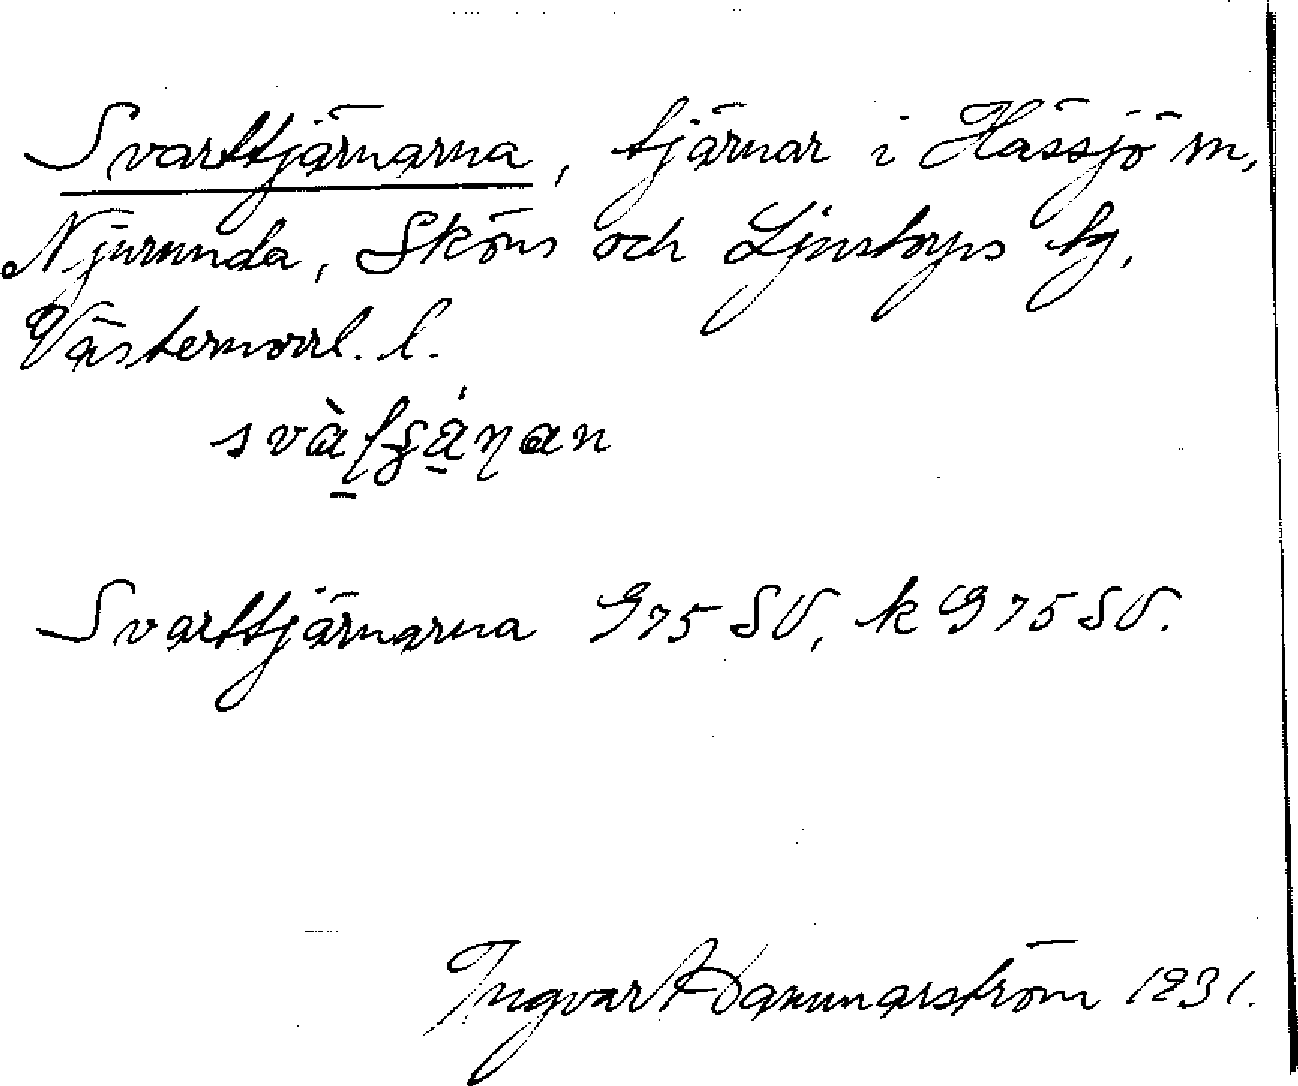 Svarttjärnarna, tjärnar i Hässjö sn,
Njurunda, Sköns och Ljustorps tg,
Västernorrl. l.
Svarttjärnarna G75 SV, k G75 SV.
Ingvar Hammarström 1931.